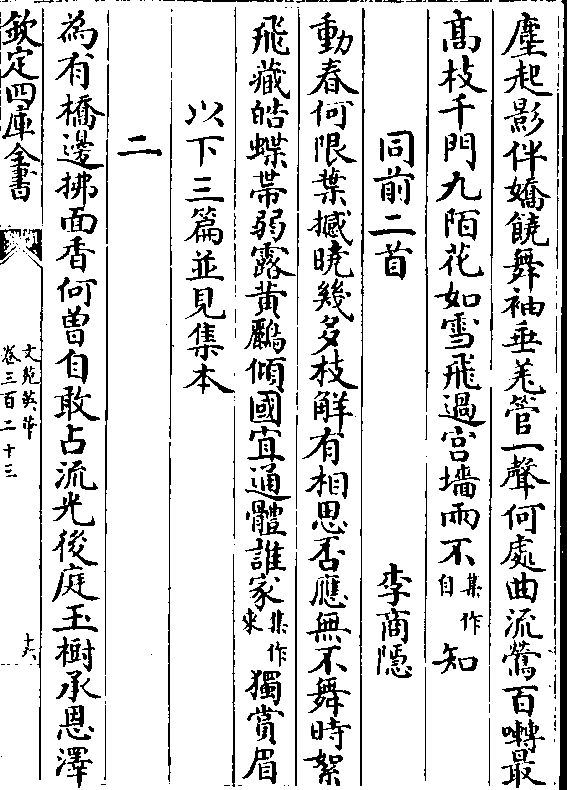 塵起影伴嬌饒舞袖垂羌管一聲何處曲流鶯百囀最
髙枝千門九陌花如雪飛過宫墻兩不集作自知
同前二首 李商隱
動春何限葉撼曉幾多枝解有相思否應無不舞時絮
飛藏皓蝶帯弱露黄鸝傾國宜通體誰家集作來獨賞眉
以下三篇並見集本
二
為有橋邊拂面香何曽自敢占流光後庭玉樹承恩澤
欽定四庫全書
文苑英華
卷三百二十三
十六